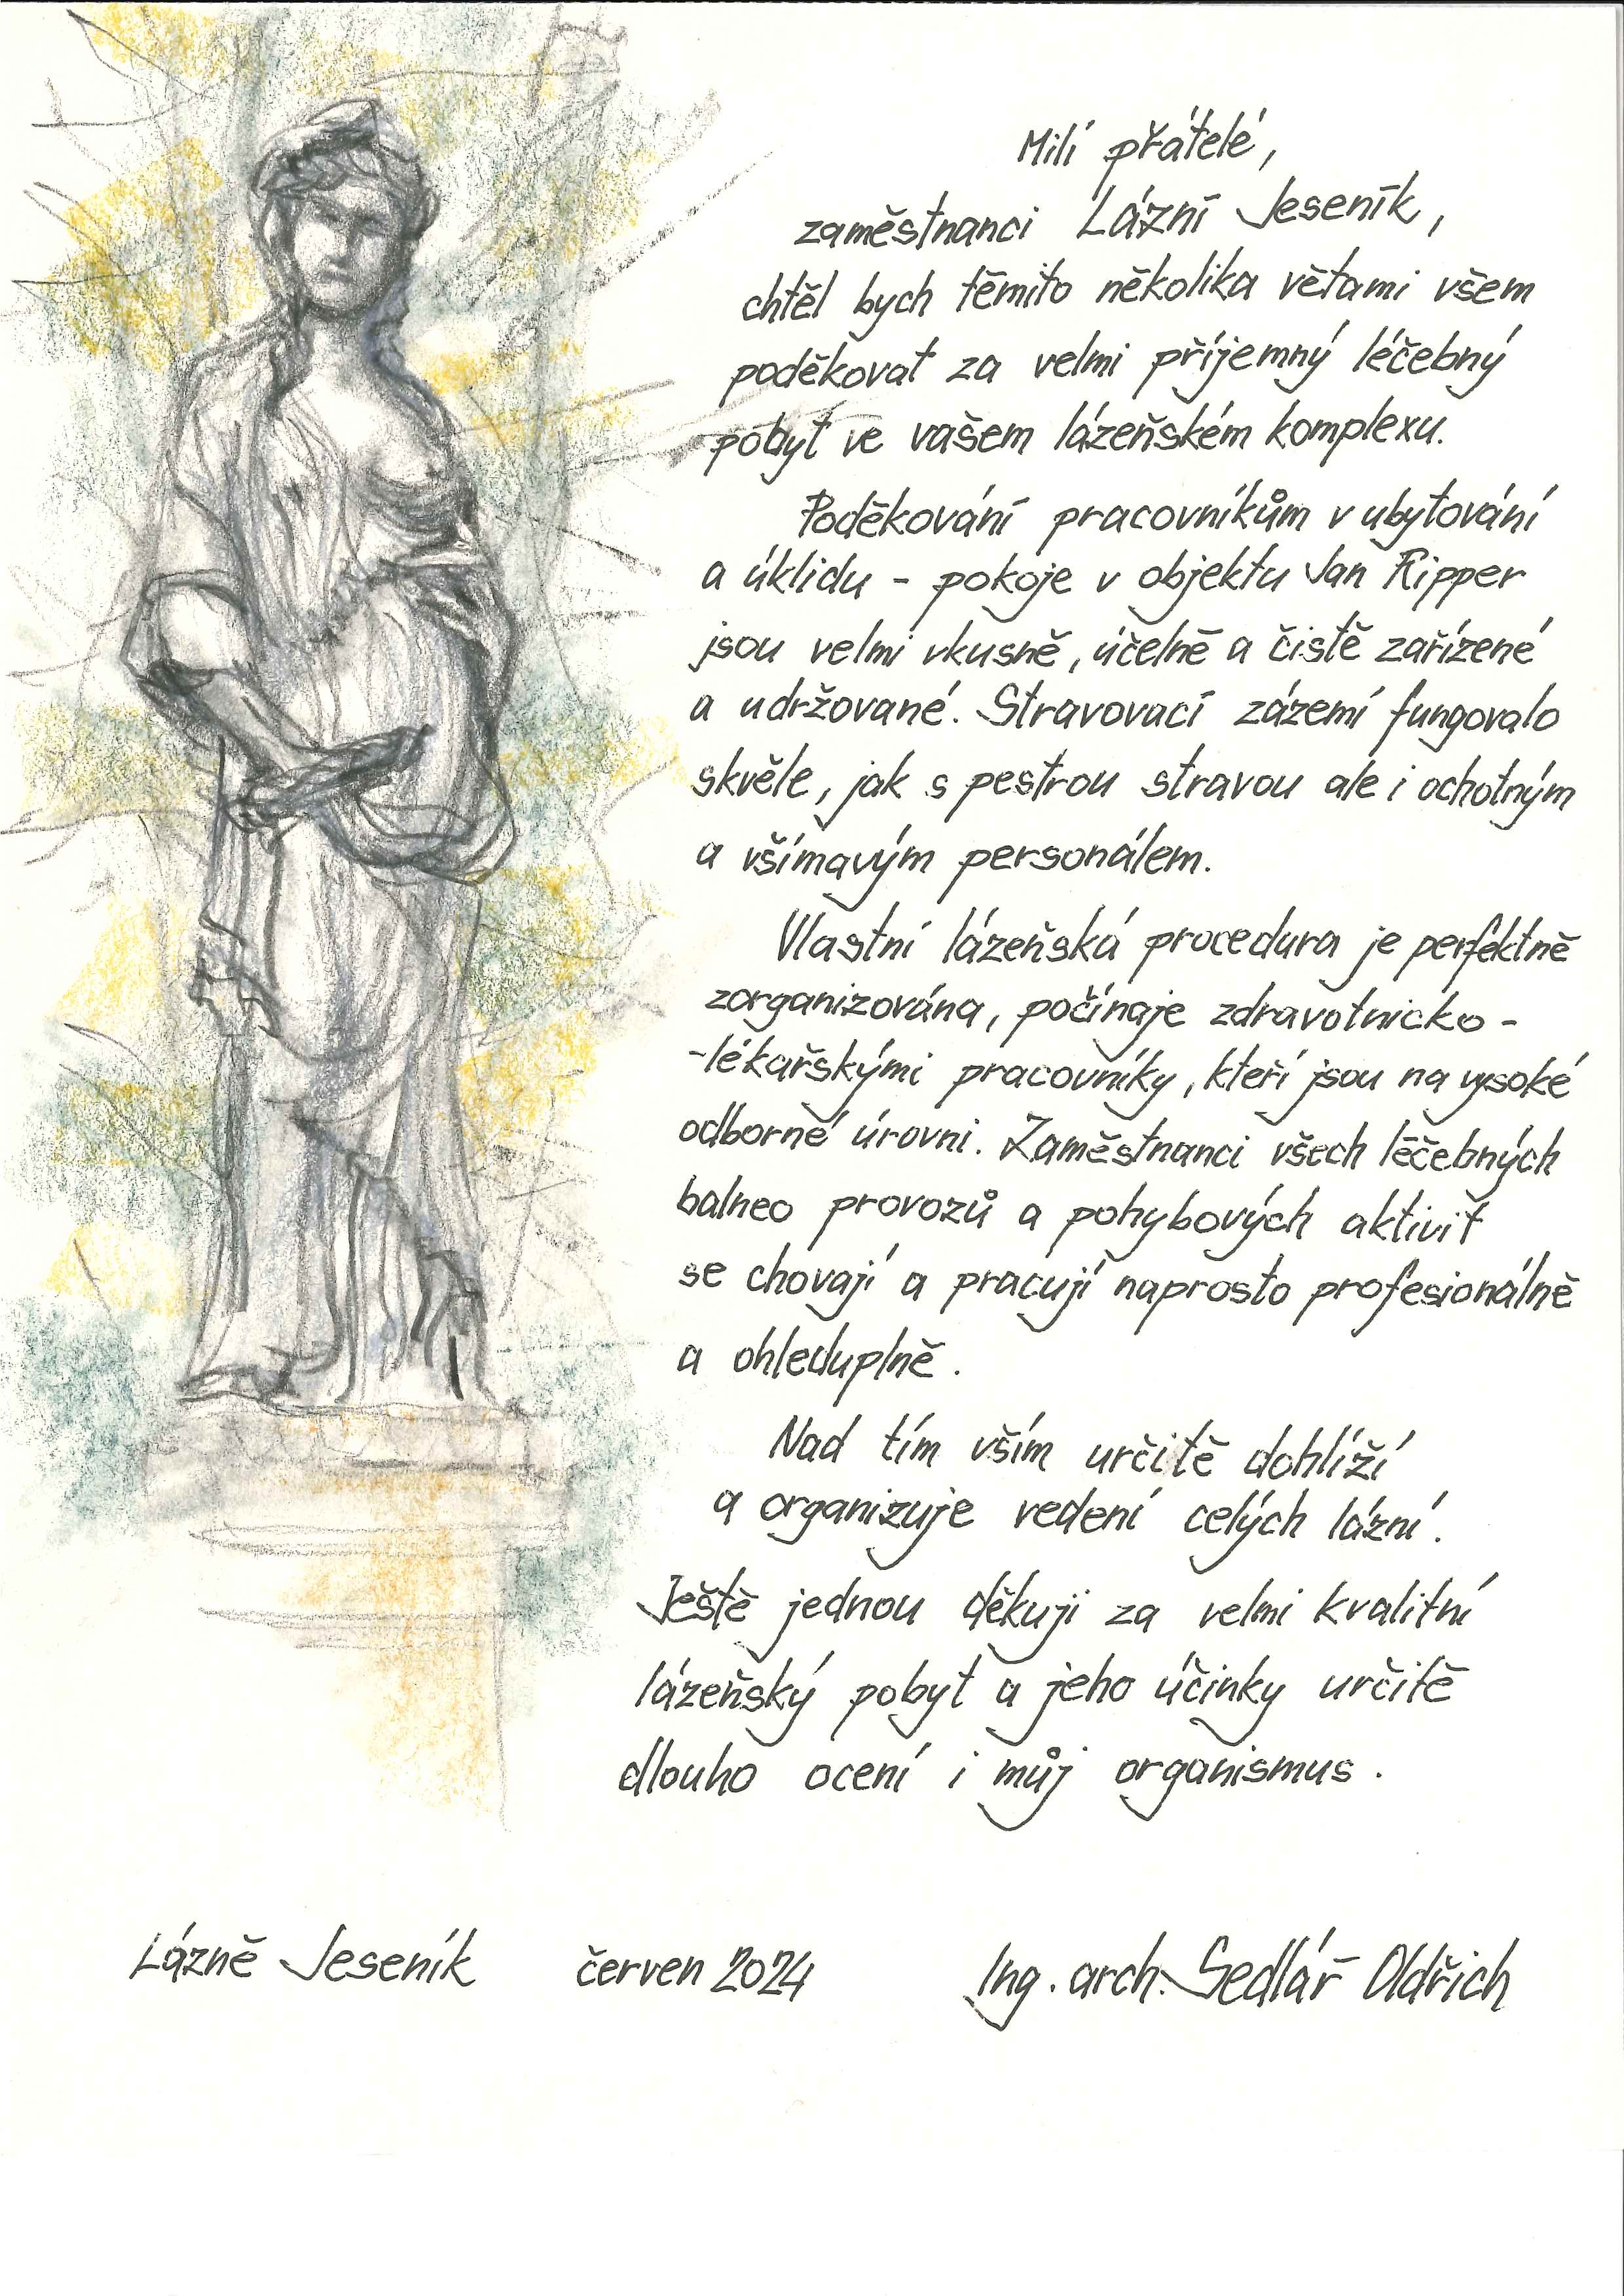 Milí přátelé,
zaměstnanci Lázní Jeseník,
chtěl bych těmito několika větami všem
poděkovat za velmi příjemný léčebný
pobyt ve vašem lázeňském komplexu.
Poděkování pracovníkům v ubytování
a úklidu - pokoje v objektu Jan Ripper
jsou velmi vkusně, účelně a čistě zařízené
a udržované. Stravovací zázemí fungovalo
skvěle, jak s pestrou stravou ale i ochotným
a všímavým personálem.
Vlastní lázeňská procedura je perfektně
zorganizována, počínaje zdravotnicko -
-lékařskými pracovníky, kteří jsou na vysoké
odborné úrovni. Zaměstnanci všech léčebných
balneo provozů a pohybových aktivit
se chovají a pracují naprosto profesionálně
a ohleduplně.
Nad tím vším určitě dohlíží
a organizuje vedení celých lázní.
Ještě jednou děkuji za velmi kvalitní
lázeňský pobyt a jeho účinky určitě
dlouho ocení i můj organismus.
Lázně Jeseník červen 2024 Ing. arch. Sedlář Oldřich